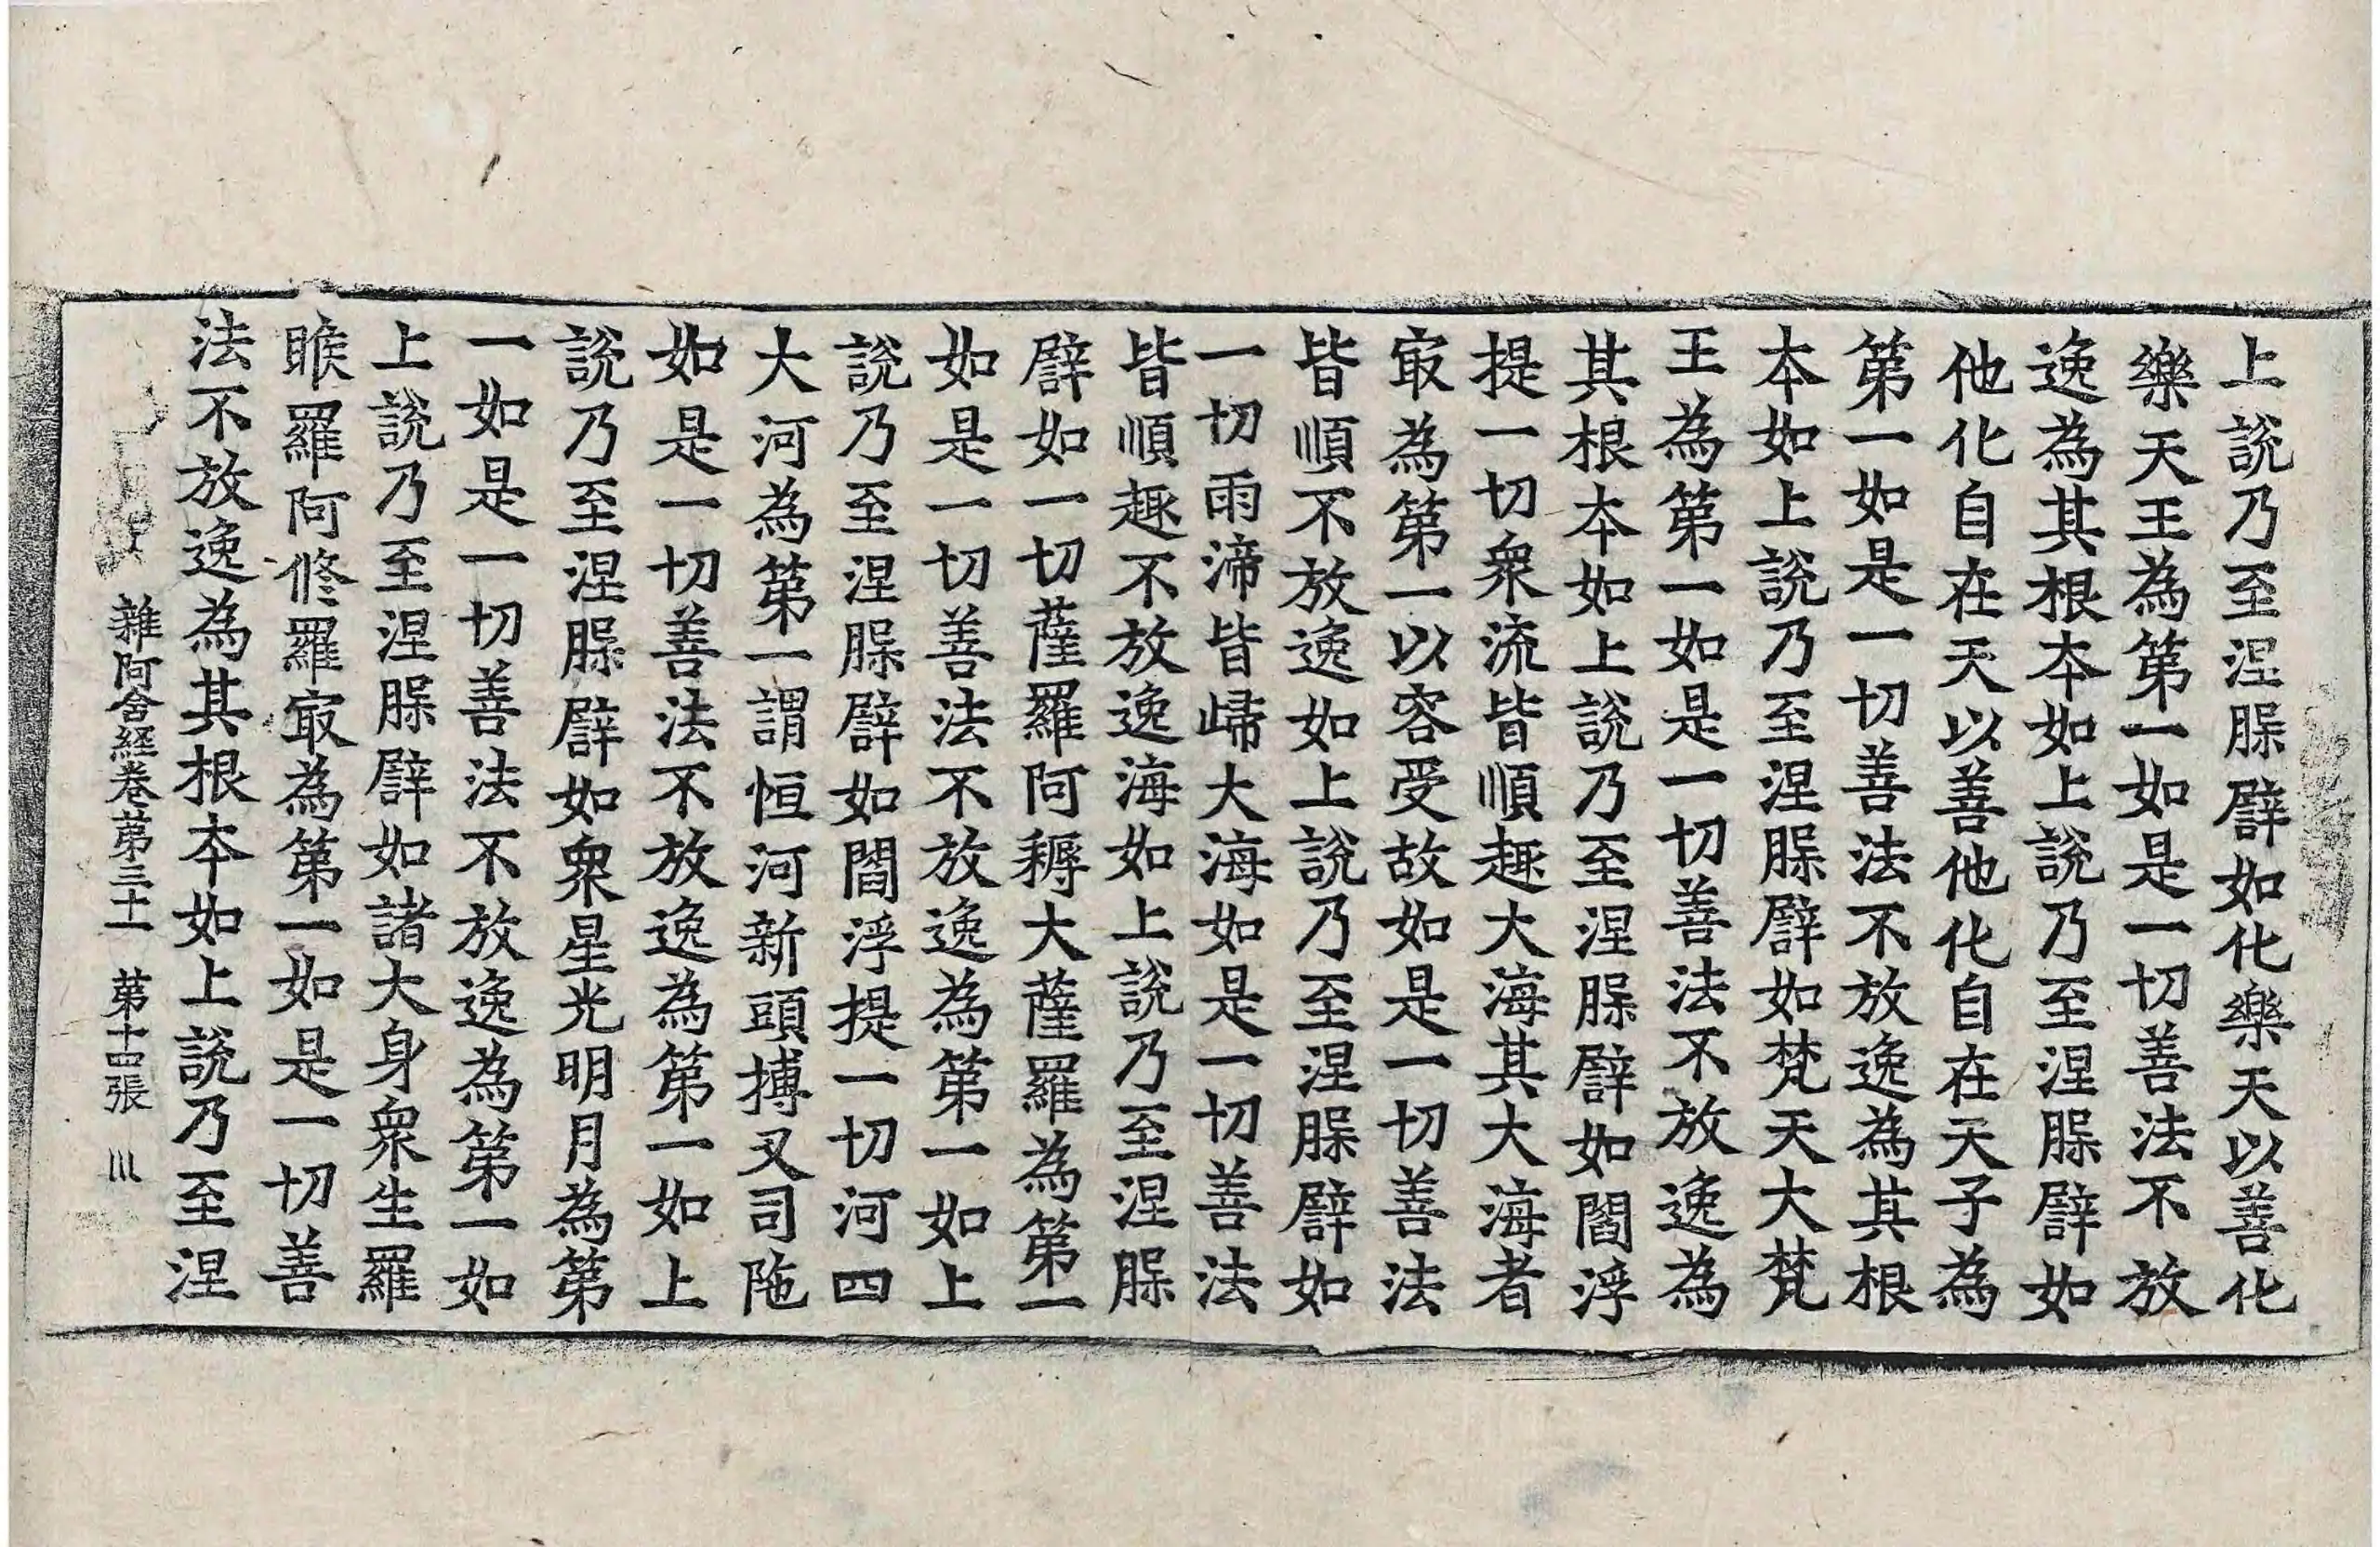 上說乃至涅槃譬如化樂天以善化
樂天王為第一如是一切善法不放
逸為其根本如上說乃至涅槃譬如
他化自在天以善他化自在天子為
第一如是一切善法不放逸為其根
本如上說乃至涅槃譬如梵天大梵
王為第一如是一切善法不放逸為
其根本如上說乃至涅槃譬如閻浮
提一切衆流皆順趣大海其大海者
㝡為第一以容受故如是一切善法
皆順不放逸如上說乃至涅槃譬如
一切雨渧皆歸大海如是一切善法
皆順趣不放逸海如上說乃至涅槃
譬如一切薩羅阿耨大薩羅為第一
如是一切善法不放逸為第一如上
說乃至涅槃譬如閻浮提一切河四
大河為第一謂恒河新頭搏叉司陁
如是一切善法不放逸為第一如上
說乃至涅槃譬如衆星光明月為第
一如是一切善法不放逸為第一如
上說乃至涅槃譬如諸大身衆生羅
睺羅阿修羅㝡為第一如是一切善
法不放逸為其根本如上說乃至涅
雜阿含経卷第三十一 第十四張 川